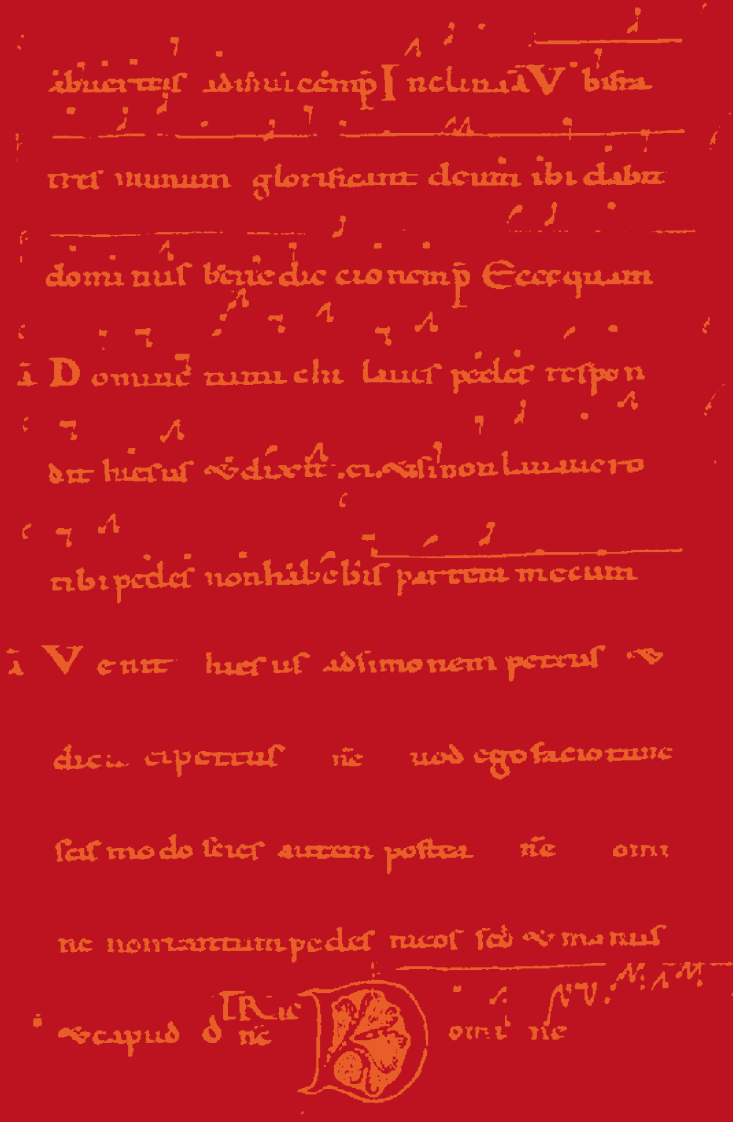 In clina ā V bi fra
tres in unum glorificant deum ibi dabit
dominus bene dic cionem p̄ Ecce quam
ā D omine tu mi chi lauas pedes respon
dit hiesus & dixit ei & si non lauuero
tibi pedes non habebis partem mecum
ā V enit hiesus ad simonem petrus &
dicit ei petrus n̄e uod ego facio tu ne
scis modo scies autem postea n̄e omi
ne non tantum pedes meos sed & manus
& capud d n̄e D omi ne